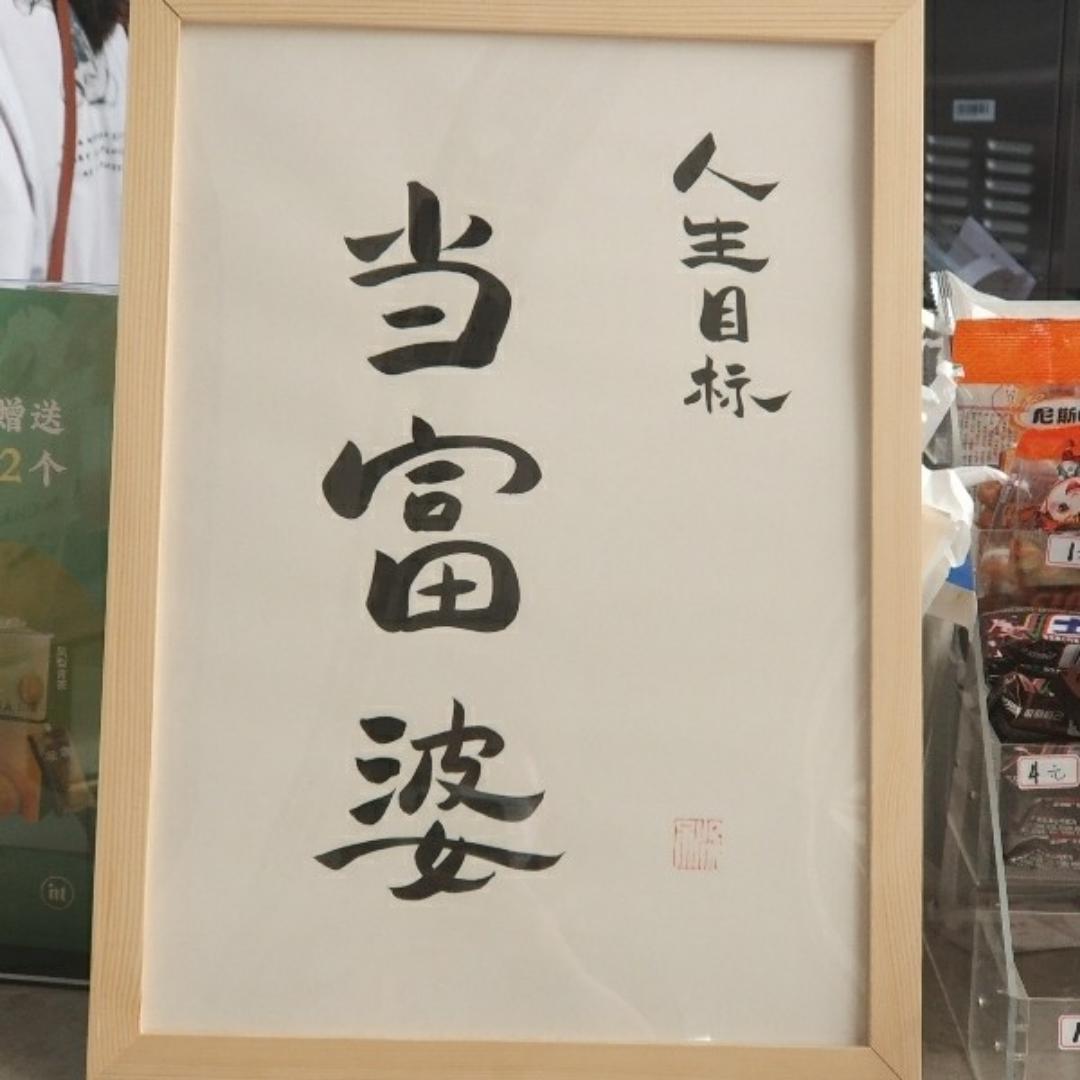 人生目标
当富婆
赠送
2个
尼斯
4元